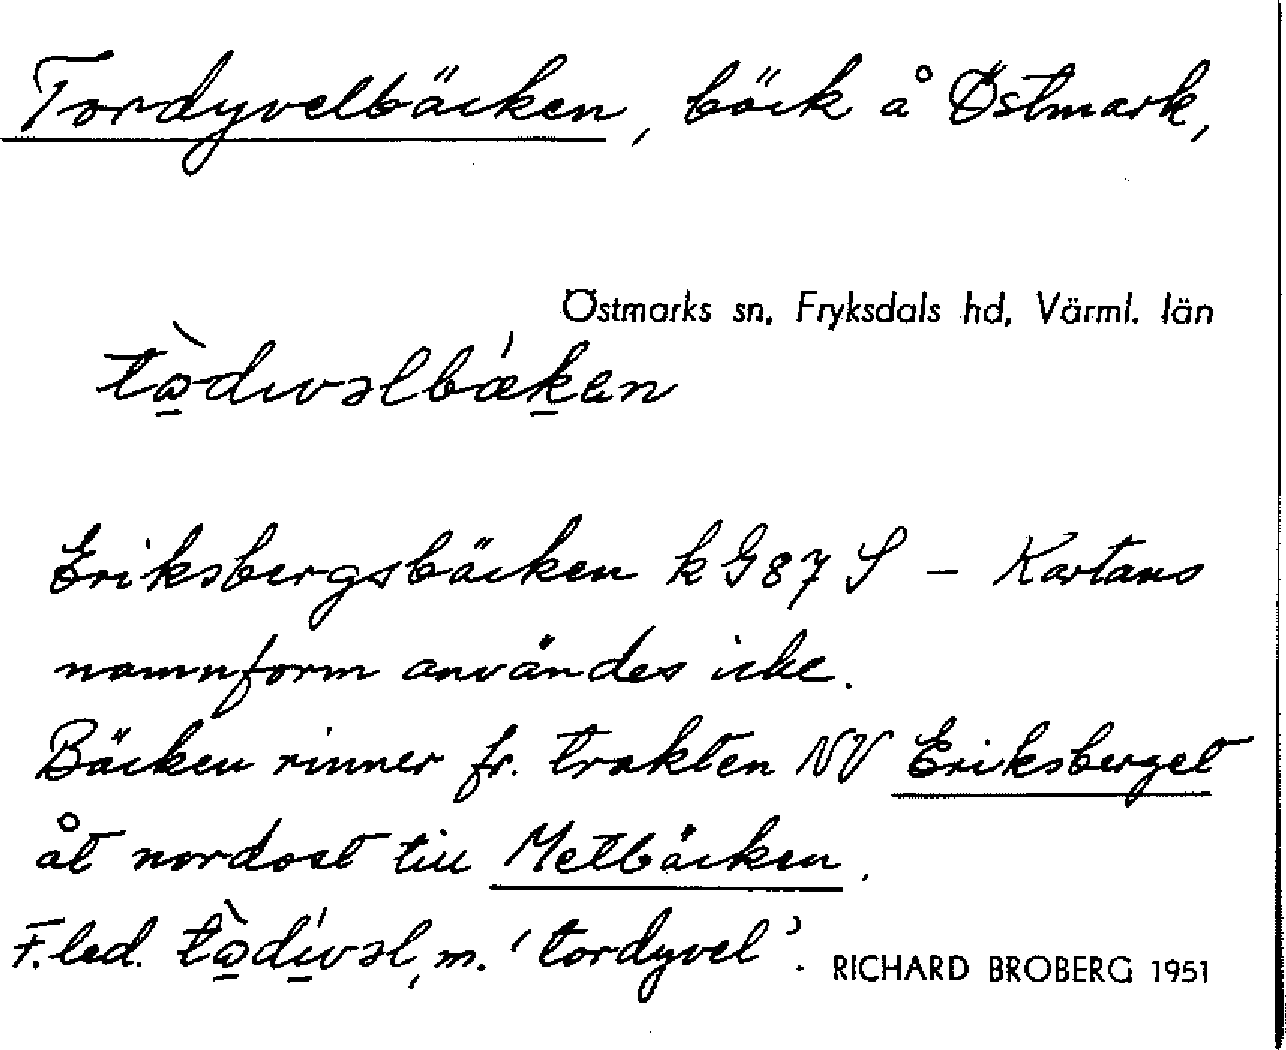 Tordyvelbäcken, bäck å Östmark,
Östmarks sn, Fryksdals hd, Värml. län
tɷ̀dıvəlbǽkən
Eriksbergsbäcken kG87 S – Kartans
namnform användes icke.
Bäcken rinner fr. trakten NV Eriksberget
åt nordost till Metbäcken.
F.led. tɷ̀dívəl, m. 'tordyvel'.
RICHARD BROBERG 1951